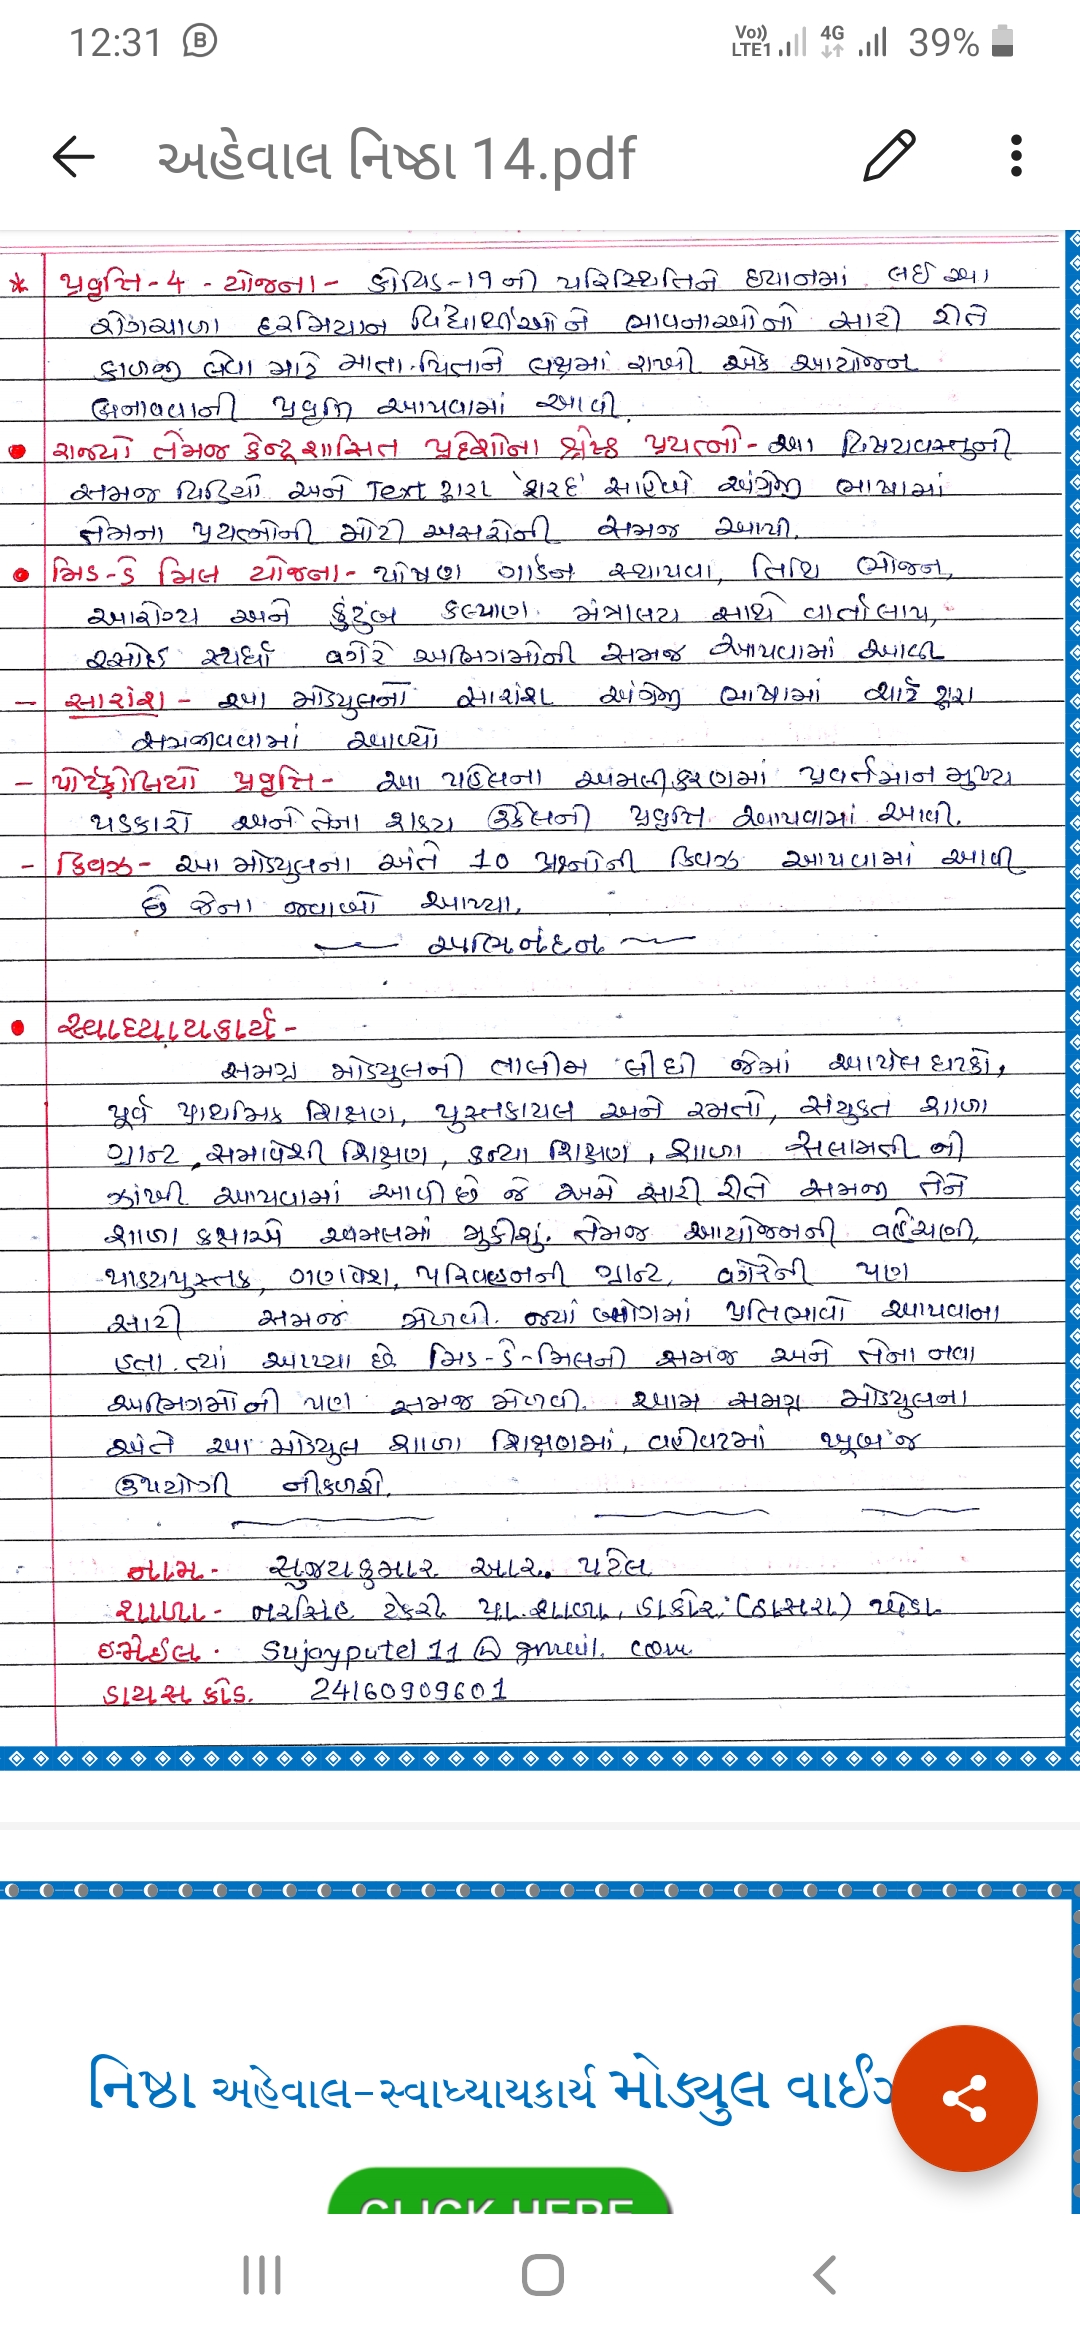 12:31
Vo)) LTE1 4G 39%
અહેવાલ નિષ્ઠા 14.pdf
* પ્રવૃત્તિ-4 - યોજના - કોવિડ-19ની પરિસ્થિતિને ધ્યાનમાં લઈ આ
રોગચાળા દરમિયાન વિદ્યાર્થીઓને ભાવનાઓની સારી રીતે
કાળજી લેવા માટે માતા-પિતાને લક્ષમાં રાખી એક આયોજન
બનાવવાની પ્રવૃત્તિ આપવામાં આવી
• રાજ્યો તેમજ કેન્દ્રશાસિત પ્રદેશોના શ્રેષ્ઠ પ્રયત્નો - આ વિષયવસ્તુની
સમજ વિડિયો અને Text દ્વારા 'શરદ' અંગ્રેજી ભાષામાં
તેમના પ્રયત્નોની મોટી અસરોની સમજ આપી.
• મિડ-ડે મિલ યોજના - પોષણ ગાર્ડન સ્થાપવા, તિથિ ભોજન,
આરોગ્ય અને કુંટુંબ કલ્યાણ મંત્રાલય સાથે વાર્તાલાપ,
રસોઈ સ્પર્ધા વગેરે અભિગમોની સમજ આપવામાં આવી
- સારાંશ - આ મોડ્યુલનો સારાંશ અંગ્રેજી ભાષામાં ચાર્ટ દ્વારા
સમજાવવામાં આવ્યો
- પોર્ટફોલિયો પ્રવૃત્તિ - આ પહેલના અમલીકરણમાં પ્રવર્તમાન મુખ્ય
પડકારો અને તેના શક્ય ઉકેલની પ્રવૃત્તિ આપવામાં આવી.
- ક્વિઝ - આ મોડ્યુલના અંતે 10 પ્રશ્નોની ક્વિઝ આપવામાં આવી
છે જેના જવાબો આપ્યા.
અભિનંદન
• સ્વાધ્યાયકાર્ય -
સમગ્ર મોડ્યુલની તાલીમ લીધી જેમાં આપેલ ઘટકો,
પૂર્વ પ્રાથમિક શિક્ષણ, પુસ્તકાલય અને રમતો, સંયુક્ત શાળા
ગ્રાન્ટ, સમાવેશી શિક્ષણ, કન્યા શિક્ષણ, શાળા સલામતી ની
ઝાંખી આપવામાં આવી છે જે અમે સારી રીતે સમજી તેને
શાળા કક્ષાએ અમલમાં મુકીશું. તેમજ આયોજનની વહેંચણી,
પાઠ્યપુસ્તક, ગણવેશ, પરિવહનની ગ્રાન્ટ, વગેરેની પણ
સારી સમજ મેળવી. જ્યાં બ્લોગમાં પ્રતિભાવો આપવાના
હતા. ત્યાં આપ્યા છે મિડ-ડે-મિલની સમજ અને તેના નવા
અભિગમોની પણ સમજ મેળવી. આમ સમગ્ર મોડ્યુલના
અંતે આ મોડ્યુલ શાળા શિક્ષણમાં, વહીવટમાં ખૂબ જ
ઉપયોગી નીકળશે.
નામ - સુજયકુમાર આર. પટેલ
શાળા - નરસિંહ ટેકરી પ્રા. શાળા, ડાકોર (ઠાસરા) ખેડા
ઇમેઈલ - Sujaypatel11@gmail.com
ડાયસ કોડ. 24160909601
નિષ્ઠા અહેવાલ-સ્વાધ્યાયકાર્ય મોડ્યુલ
CLICK HERE